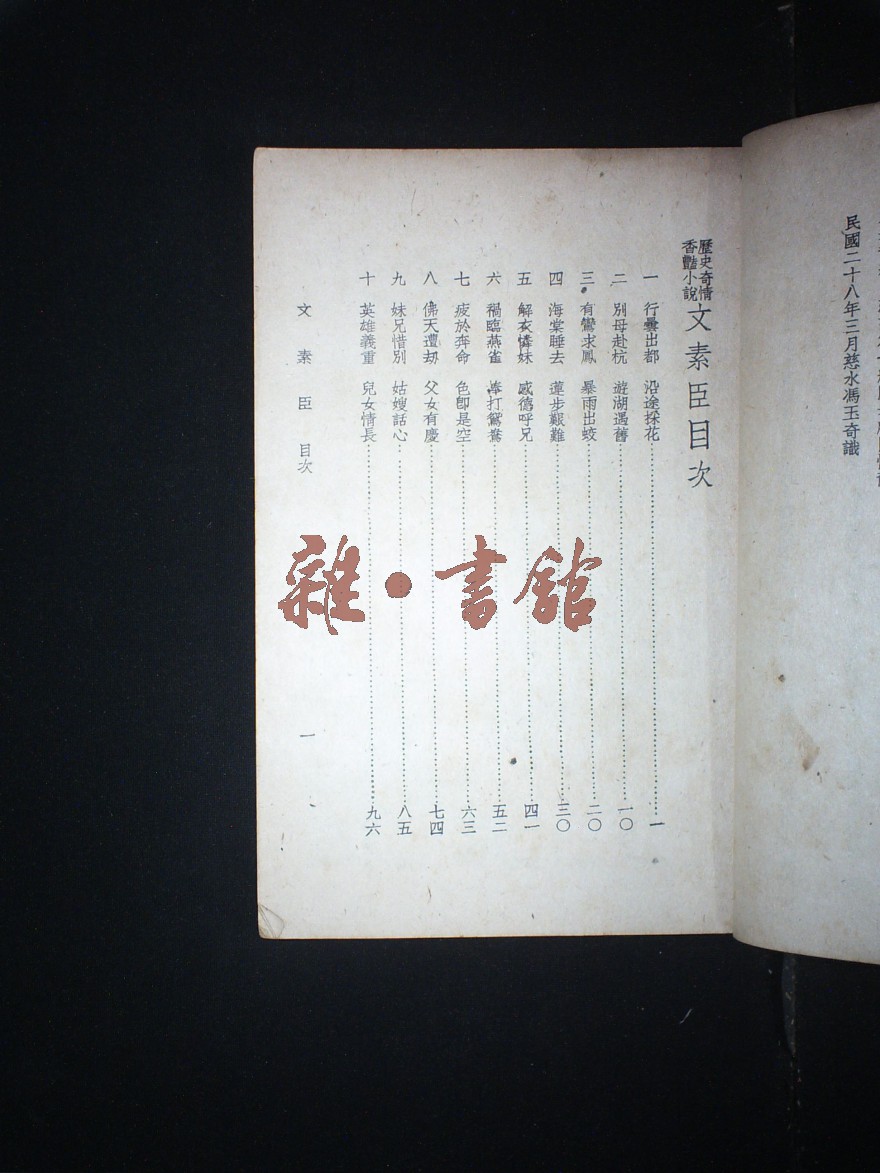 民國二十八年三月慈水馮玉奇識
歷史奇情
香豔小說
文素臣目次
一 行曇出都 沿途採花 一
二 別母赴杭 遊湖遇舊 一〇
三 有鸞求鳳 暴雨出蛟 二〇
四 海棠睡去 蓮步艱難 三〇
五 解衣憐妹 感德呼兄 四一
六 禍臨燕雀 棒打鴛鴦 五二
七 疲於奔命 色卽是空 六三
八 佛天遭劫 父女有慶 七四
九 妹兄惜別 姑嫂話心 八五
十 英雄義重 兒女情長 九六
文素臣 目次 一
雜·書館